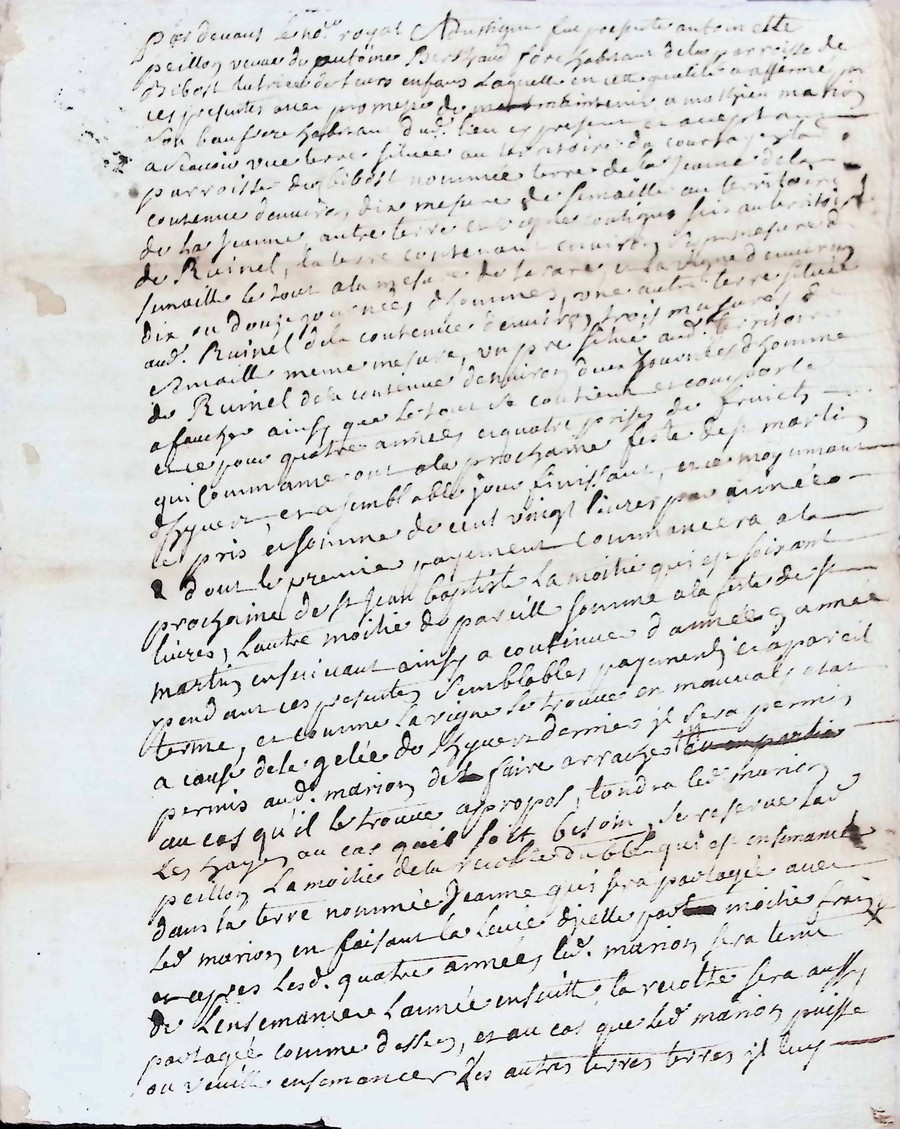 Par devant le no.re royal Soussigne fut presente antoinette
peillon veuve de antoine Berthaud son habitant de la parroisse de
Bibost tutrice de leurs enfans laquelle en cette qualité a affermé par
ces presentes avec promesse de maintenir a mathieu marion
son beaufrere habitant dud. lieu cy present et aceptant
a Scavoir une terre située au territoire du
parroisse de Bibost nommée terre de la Jeanne de la
contenue d'environ dix mesure de Semaille au territoire
de la Jeanne, autre terre et vigne contigus sis au territoire
de Ruinel, la terre contenant environ mesure de
semaille le tout a la mesure de et la vigne d'environ
dix ou douze journées d'hommes, une autre terre située
aud. Ruinel de la contenue d'environ trois mesures de
Semaille meme mesure, un pre situé aud. territoire
de Ruinel de la contenue d'environ deux Journées d'homme
a faucher ainsy que le tout se contient et comporte
et ce pour quatre années et quatre prises de fruicts
qui Commanceront a la prochaine feste de st martin
d'hyver, et a semblable jour finissant, et ce moyennant
le pris et somme de cent vingt livres par année
dont le premier payement commancera a la
prochaine de st Jean baptiste la moitié qui est soixant
livres, l'autre moitié de pareille somme a la feste de st
martin ensuivant ainsy a continuer d'année en année
pendant ces presentes Semblables payements et a pareil
terme, et comme la vigne se trouve en mauvais etat
a cause de la gelée de l'hyver dernier il sera permis
permis aud. marion de faire arracher ou en partie
au cas qu'il le trouve apropos, tondra led. marion
les hayes au cas qu'il soit besoin, se reserve lad.
peillon la moitié de la recolte du blé qui est ensemancé
dans la terre nommée Jeanne qui sera partagée avec
led. marion en faisant la levée d'icelle par moitié frais
et apres lesd. quatre années led. marion sera tenu
de l'ensemancer l'année ensuitte, la recolte sera aussy
partagée comme dessus, et au cas que led. marion puisse
ou veuille ensemancer les autres terres terres il luy